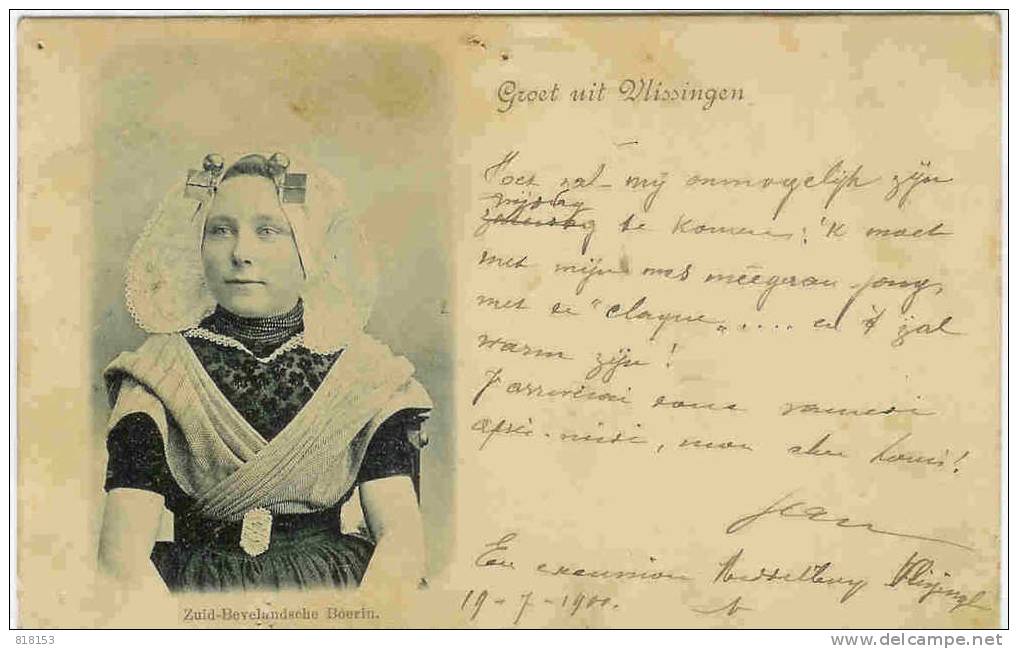 Groet uit Vlissingen
Het zal mij onmogelijk zijn
vrijdag
zaterdag te komen; 'k moet
met mijn
met de "claque„ .... en 't zal
warm zijn!
J'arriverai donc samedi
après-midi, mon cher Louis!
Jean
En excursion Middelburg
19-7-1900.
Zuid-Bevelandsche Boerin.
818153
www.delcampe.net